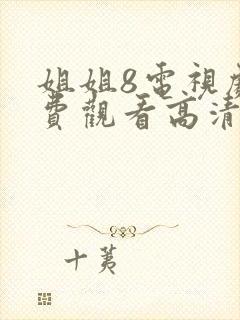 姐姐8電視劇
費觀看高清
十荑